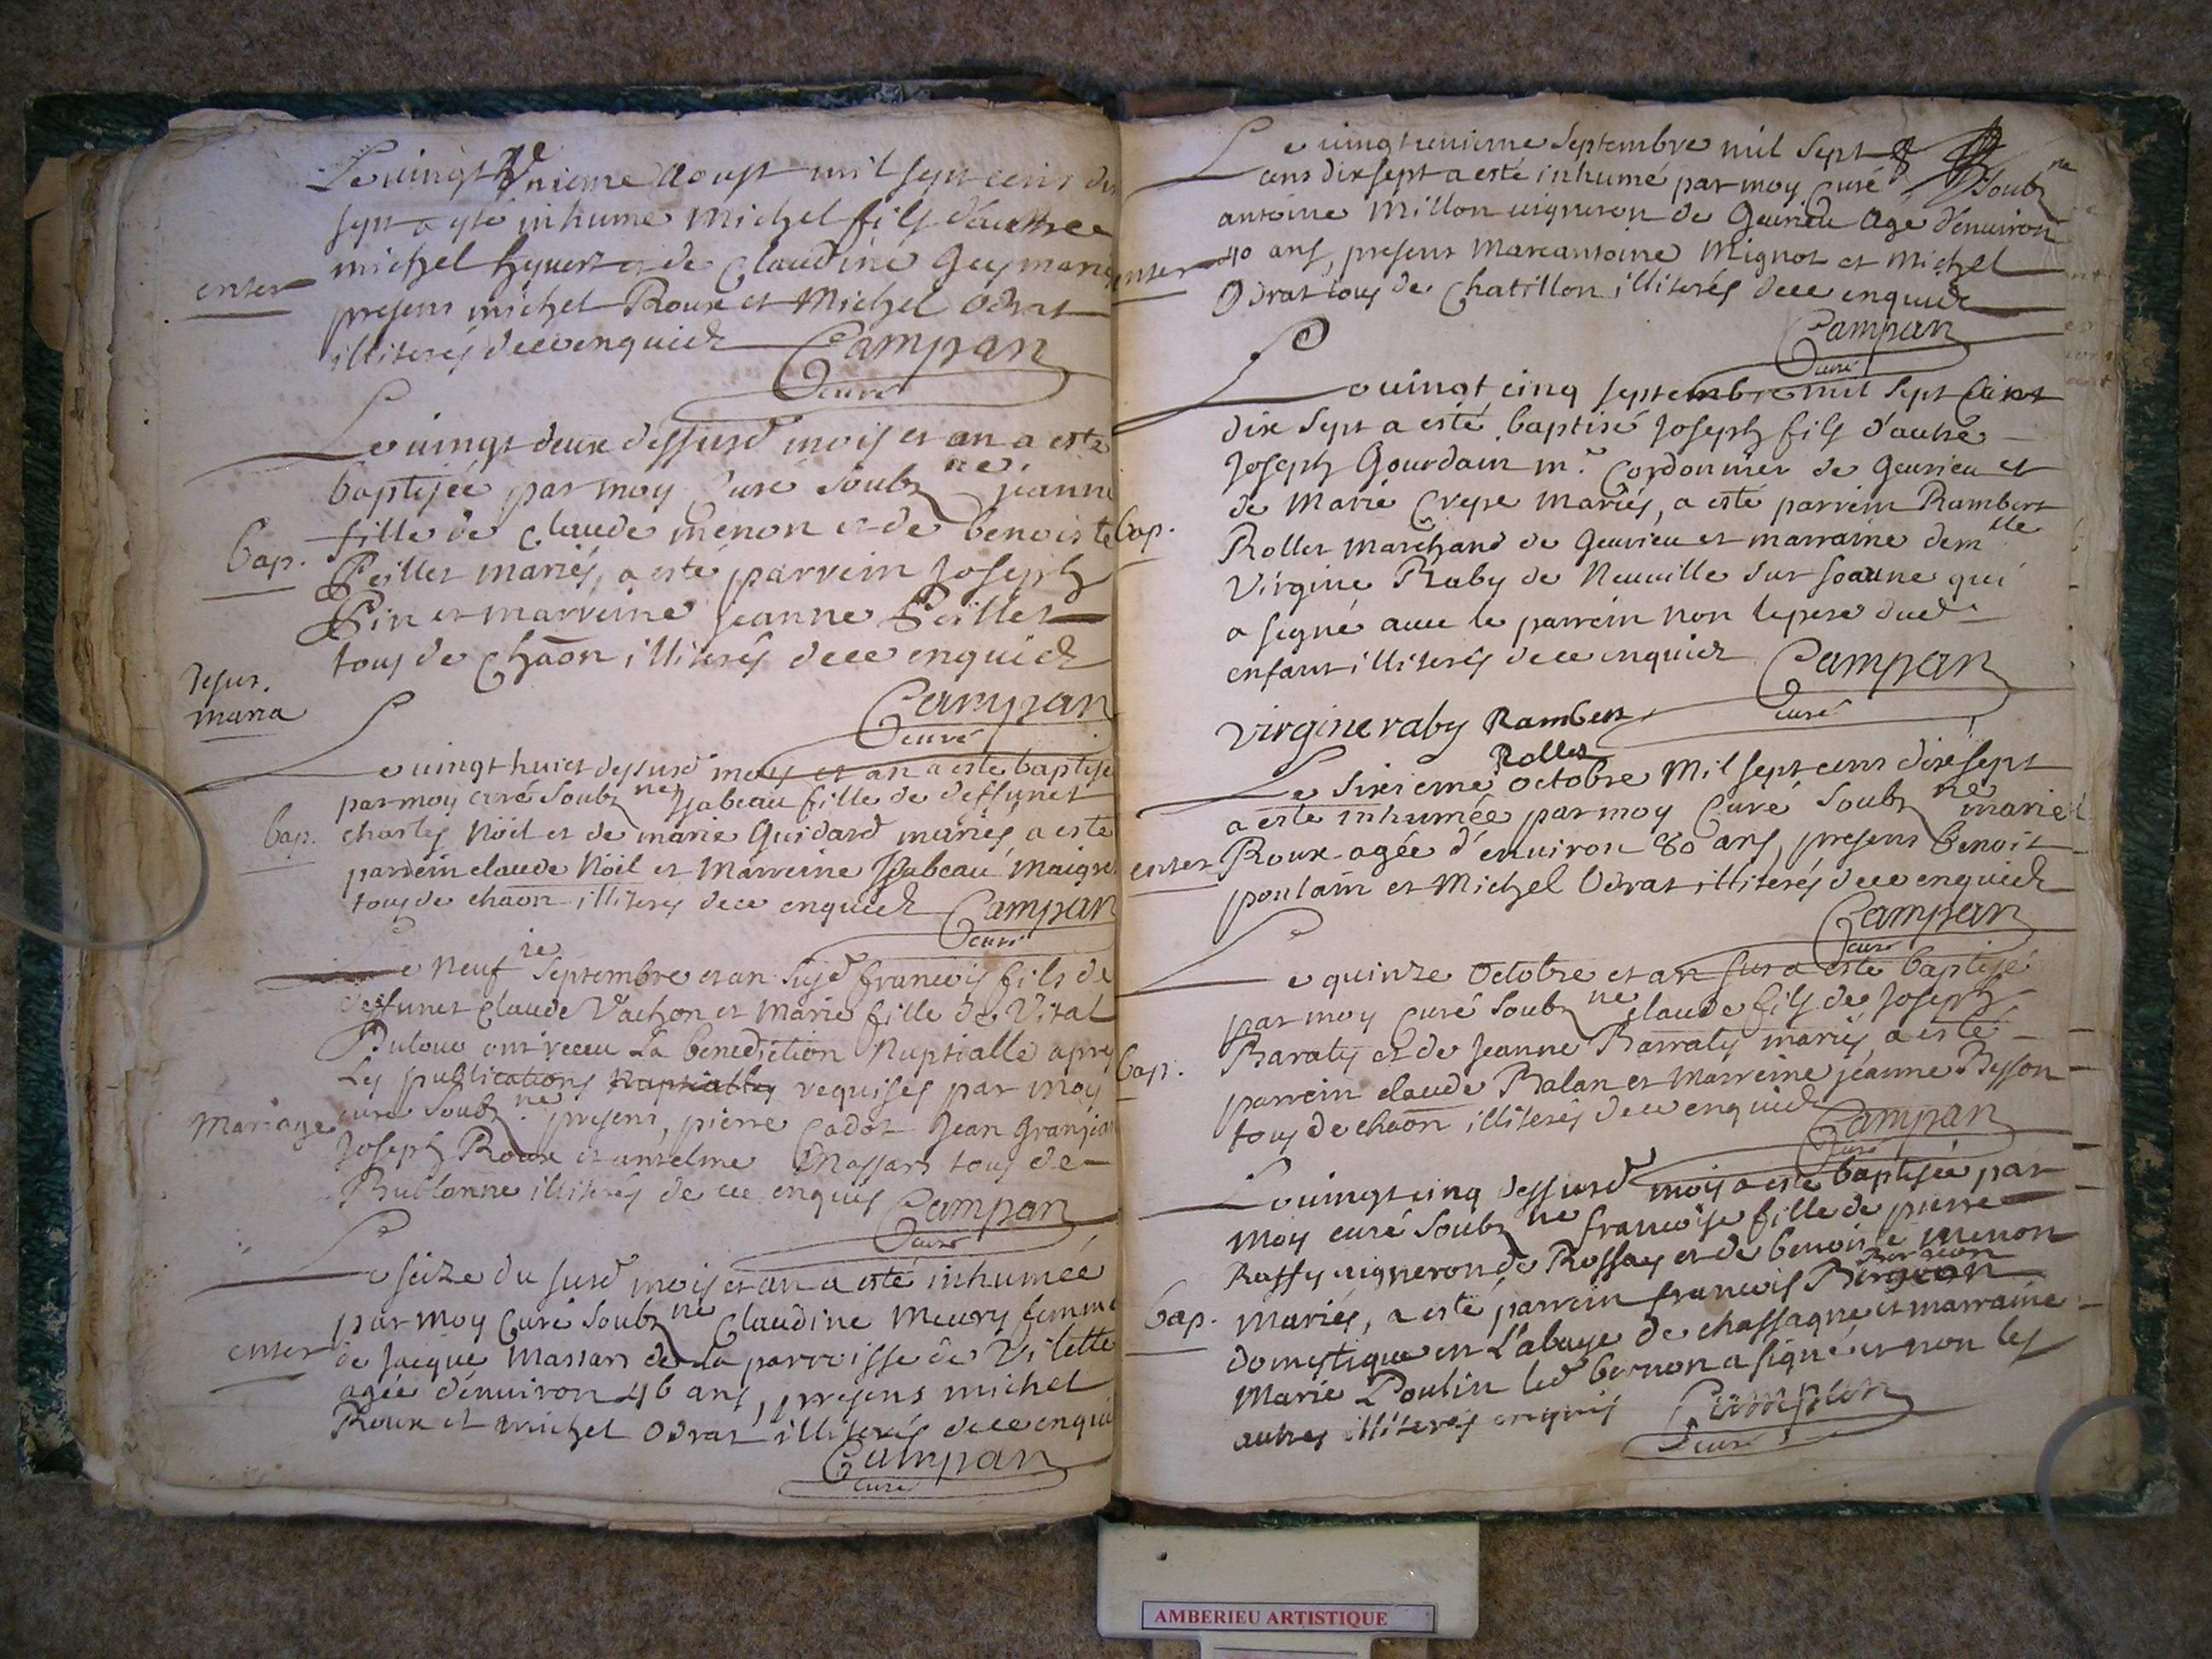 Le vingt Vnieme Aoust mil sept cens dix
sept a esté inhumé Michel fils d'autre
michel hyvert et de Claudine Guymane
enter
presens michel Roux et Michel Odrat
illiterés de ce enquich
Campan
curé
Le vingt deux dessusd mois et an a esté
baptisée par moy Curé soubz ne jeanne
fille de Claude menon et de benoiste
bap.
Peillet mariés, a esté parrein Joseph
Pin et marreine jeanne Peillet
tous de Chãon illiterés de ce enquich
Jesus.
maria
Campan
curé
Le vingt huict dessusd mois et an a este baptisé
par moy curé soubz ne ysabeau fille de deffunct
bap.
charles Nöel et de marie Guidard mariés a este
parrein claude Nöel et Marreine ysabeau Maigre
tous de chaon illiterés de ce enquich
Campan
curé
Le neuf ie Septembre et an susd francois fils de
deffunct Claude Vachon et Marie fille de Vital
Duloue ont receu La benediction Nuptialle apres
Les publications Nuptialles requises par moy
Mariage
curé soubz ne presens, pierre Cadot Jean Granjea
Joseph Roux et antelme Massart tous de
Bublanne illiterés de ce enquis
Campan
curé
Le seize du susd mois et an a esté inhumée
par moy Curé soubz ne Claudine Meury femme
enter
de Jacque Massart de La parroisse de Vilette
agée d'enuiron 46 ans, presens michel
Roux et michel Odrat illiterés de ce enqui
Campan
curé
Le vingt unieme Septembre mil sept
cens dix sept a esté inhumé par moy Curé soubz ne
antoine Millon uigneron de Geurieu Age d'enuiron
enter
40 ans, presens Marcantoine Mignot et Michel
Odrat tous de Chatillon illiterés de ce enquich
Campan
curé
Le vingt cinq septembre mil sept Cent
dix sept a esté baptisé Joseph fils d'autre
Joseph Gourdain m.e Cordonnier de Geurieu et
de Marie Crepe mariés, a esté parrein Rambert
bap.
Rollet Marchand de Geurieu et marraine dem lle
Virgine Raby de Neuuille sur soanne qui
a signé auec le parrein non le pere dud
enfant illiterés de ce enquich
Campan
curé
virgine raby Rambert
Rollet
Le sixieme Octobre Mil sept cens dix sept
a esté inhumée par moy Curé soubz ne marie
enter
Roux agée d'enuiron 80 ans, presens benoit
poulain et Michel Odrat illiterés de ce enquich
Campan
curé
Le quinze Octobre et an sus a esté baptisé
par moy Curé soubz ne claude fils de Joseph
Baraty et de Jeanne Barraty mariés a esté
bap.
parrein claude Balan et Marreine jeanne Besson
tous de chaõn illiterés de ce enquich
Campan
curé
Le vingt cinq dessusd mois a esté baptisée par
moy curé soubz ne francoise fille de pierre
Raffy uigneron de Rossay et de benoiste menon
Bernon
bap.
mariés, a esté parrein francois
domestique en L'abaye de chassagne et marraine
Marie Poulin led bernon a signé et non les
autres illiterés enquis
Campan
curé
AMBERIEU ARTISTIQUE